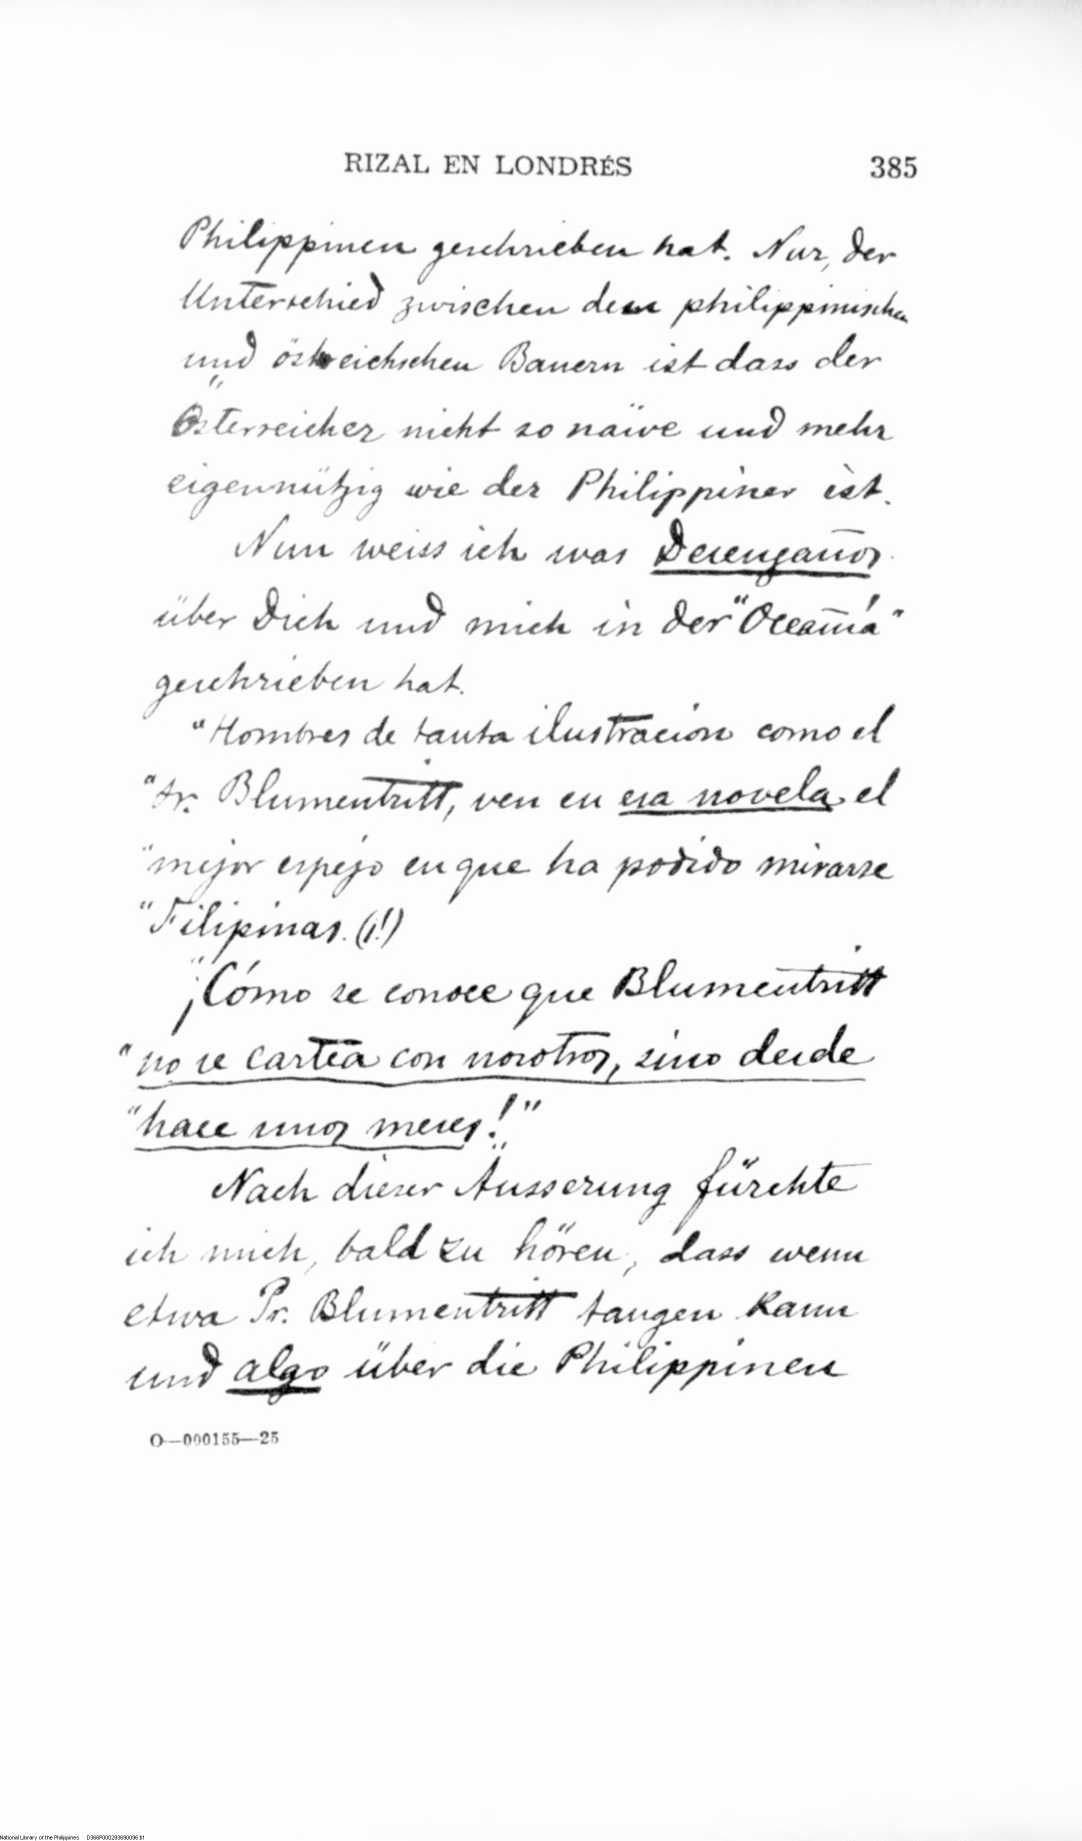 RIZAL EN LONDRÉS 385
Philippinen geschrieben hat. Nur, der
Unterschied zwischen dem philippinischen
und östreichschen Bauern ist dass der
Österreicher nicht so naïve und mehr
eigennützig wie der Philippiner ist.
Nun weiss ich was Desengaños
über Dich und mich in der "Oceanía"
geschrieben hat.
"Hombres de tanta ilustracion como el
"Sr. Blumentritt, ven en esa novela el
"mejor espejo en que ha podido mirarse
"Filipinas. (¡!)
"¡Cómo se conoce que Blumentritt
"no se cartea con nosotros, sino desde
"hace unos meses!"
Nach dieser Äusserung fürchte
ich mich, bald zu hören, dass wenn
etwa Pr. Blumentritt taugen kann
und algo über die Philippinen
O—000155—25
National Library of the Philippines